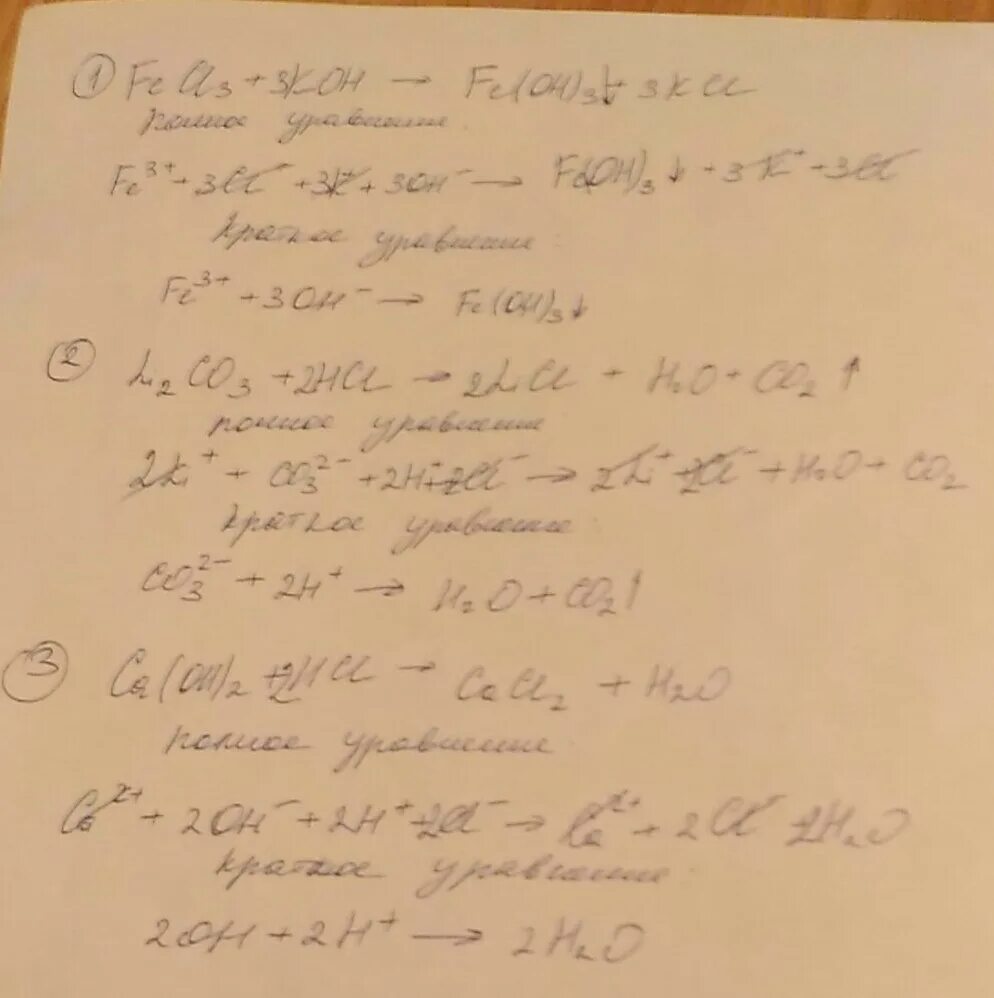 ① FeCl₃ + 3KOH → Fe(OH)₃↓ + 3KCl
полное уравнение:
Fe³⁺ + 3Cl⁻ + 3K⁺ + 3OH⁻ → Fe(OH)₃↓ + 3K⁺ + 3Cl⁻
Краткое уравнение:
Fe³⁺ + 3OH⁻ → Fe(OH)₃↓
② Li₂CO₃ + 2HCl → 2LiCl + H₂O + CO₂↑
полное уравнение
2Li⁺ + CO₃²⁻ + 2H⁺ + 2Cl⁻ → 2Li⁺ + 2Cl⁻ + H₂O + CO₂
Краткое уравнение:
CO₃²⁻ + 2H⁺ → H₂O + CO₂↑
③ Ca(OH)₂ + 2HCl → CaCl₂ + H₂O
полное уравнение
Ca²⁺ + 2OH⁻ + 2H⁺ + 2Cl⁻ → Ca²⁺ + 2Cl⁻ + 2H₂O
Краткое уравнение:
2OH + 2H⁺ → 2H₂O